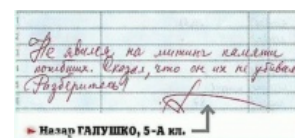 Не явился на митинг памяти
погибших. Сказал, что он их не убивал
Разберитесь!
Назар ГАЛУШКО, 5-А кл.